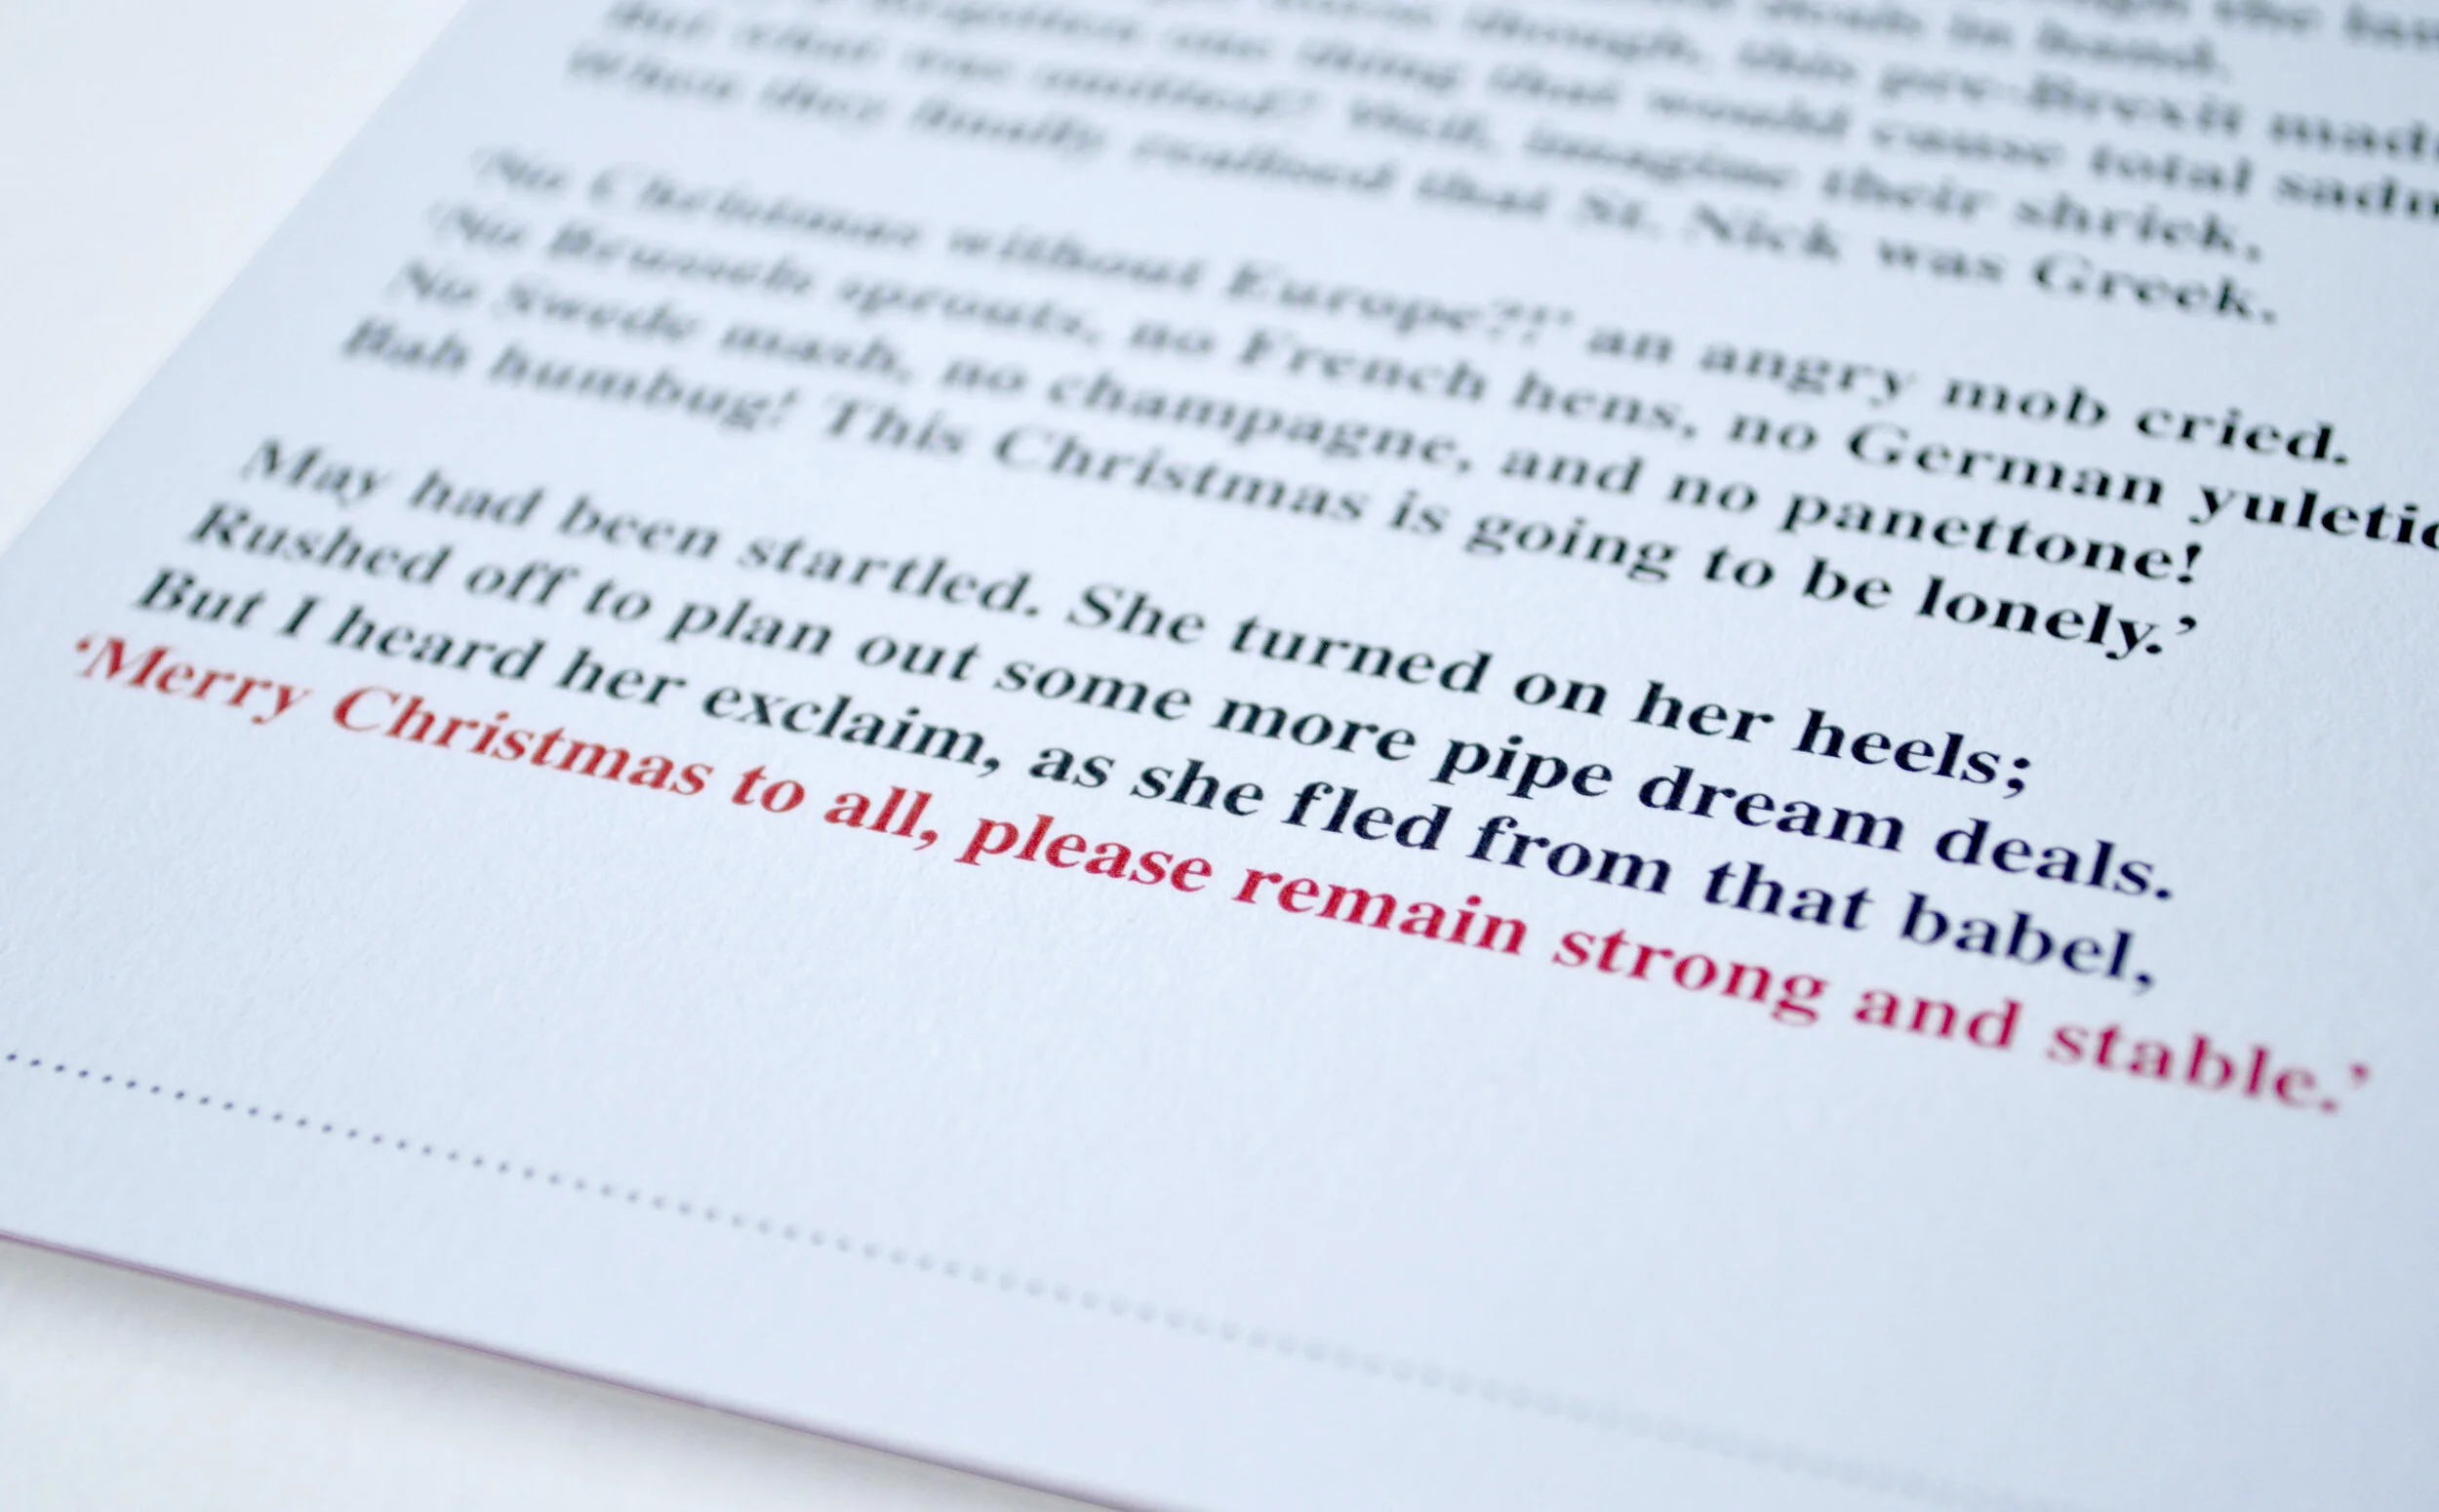 in hand.
though, this pre-Brexit
one thing that would cause total
But what was omitted? Well, imagine their shriek,
When they finally realised that St. Nick was Greek.
‘No Christmas without Europe?!’ an angry mob cried.
‘No Brussels sprouts, no French hens, no German
No Swede mash, no champagne, and no panettone!
Bah humbug! This Christmas is going to be lonely.’
May had been startled. She turned on her heels;
Rushed off to plan out some more pipe dream deals.
But I heard her exclaim, as she fled from that babel,
‘Merry Christmas to all, please remain strong and stable.’